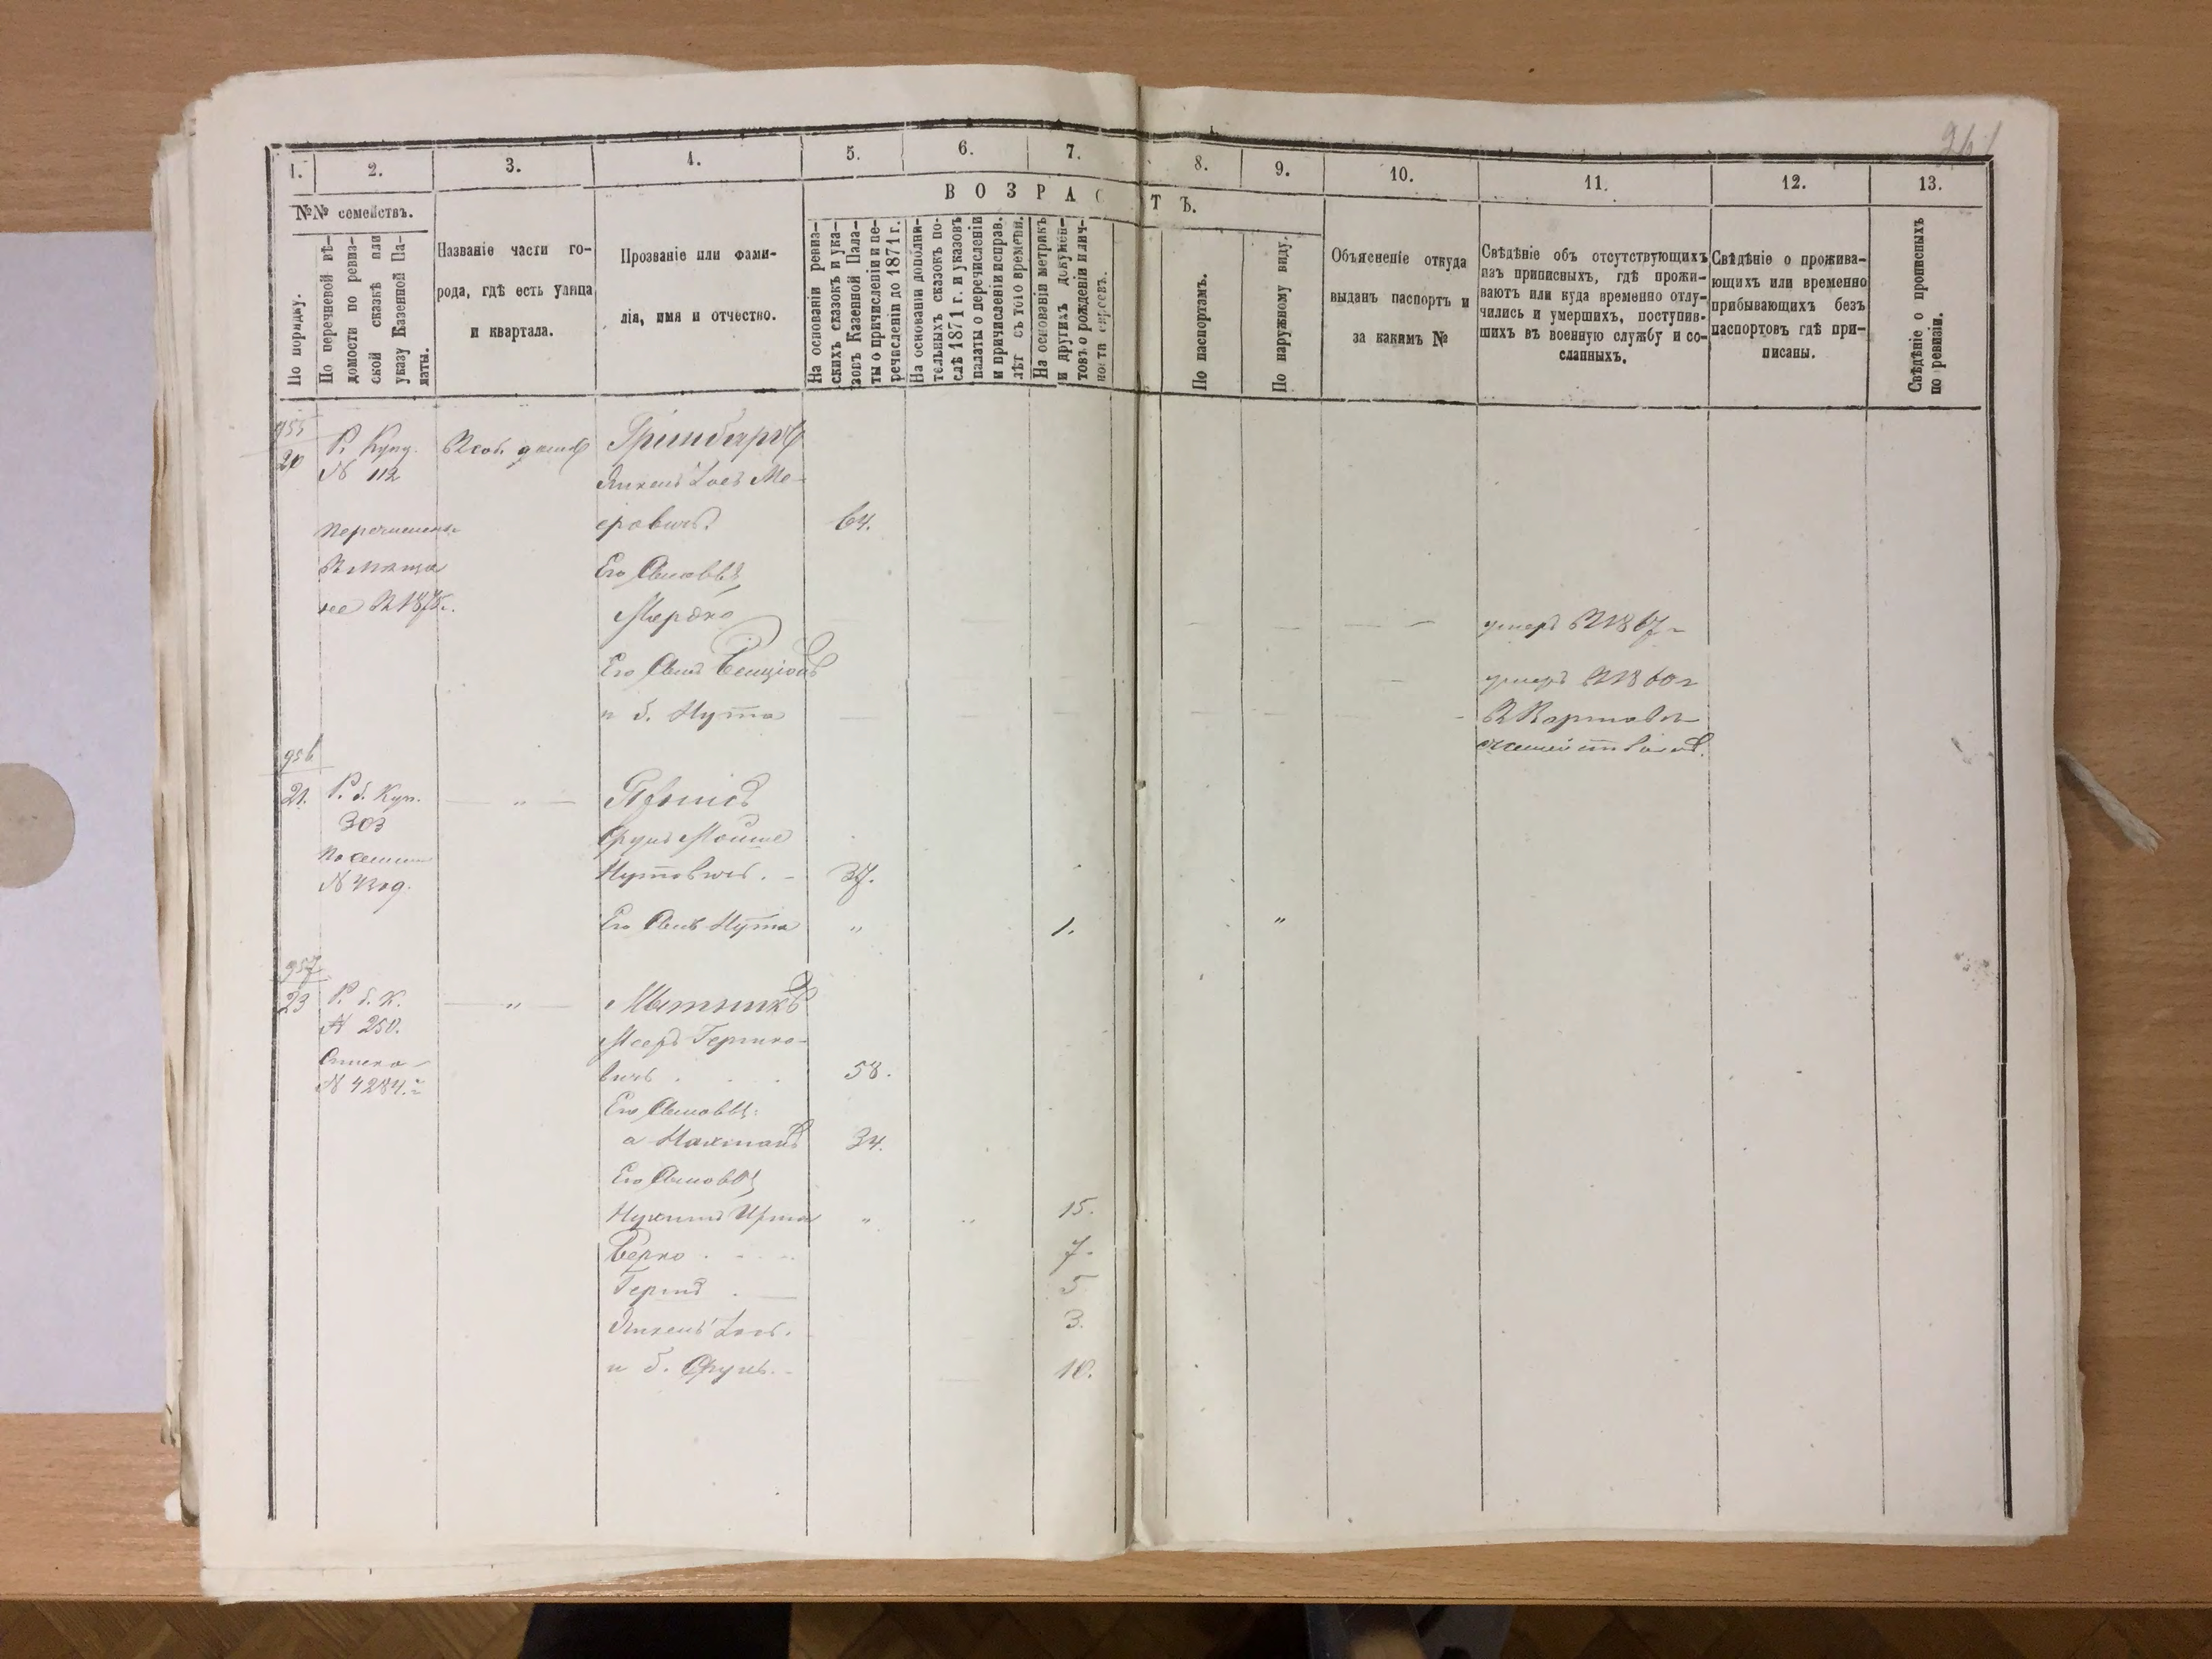 1. 2. 3. 4. 5. 6. 7. 8. 9. 10. 11. 12. 13.
№№ семействъ.
В О З Р А С Т Ъ.
По порядку.
По перечневой вѣ-
домости по ревиз-
ской сказкѣ или
указу Казенной Па-
латы.
Названіе части го-
рода, гдѣ есть улица
и квартала.
Прозваніе или фами-
лія, имя и отчество.
На основаніи ревиз-
скихъ сказокъ и ука-
зовъ Казенной Пала-
ты о причисленіи и пе-
речисленіи до 1871 г.
На основаніи дополни-
тельныхъ сказокъ по-
слѣ 1871 г. и указовъ
палаты о перечисленіи
и причисленіи исправ.
лѣт съ того времени.
На основаніи метрикъ
и другихъ докумен-
товъ о рожденіи и лич-
ности евреевъ.
По паспортамъ.
По наружному виду.
Объясненіе откуда
выданъ паспортъ и
за какимъ №
Свѣдѣніе объ отсутствующихъ
изъ приписныхъ, гдѣ прожи-
ваютъ или куда временно отлу-
чились и умершихъ, поступив-
шихъ въ военную службу и со-
сланныхъ.
Свѣдѣніе о прожива-
ющихъ или временно
прибывающихъ безъ
паспортовъ гдѣ при-
писаны.
Свѣдѣніе о прописныхъ
по ревизіи.
955
20 Гринбергъ
№ 112 Янкель Іось Ме-
еровичъ. 64.
Его Сыновья
Мердко умеръ В 1867 г
Его Сынъ Бенціонъ умеръ В 1860 г
и б. Нута
956
21. Р. б. Куп.
303
Мойше
Нутовичъ. 37.
Его Сынъ Нута " 1. "
957
23 Р. б. К. " Мытникъ
№ 250. Мееръ Гершко-
вичъ 58.
№ 4284.
Его Сыновья:
а Нахманъ 34.
Его Сыновья
Нухимъ " " 15.
Берко 7.
Гершъ 5
Янкель Іось. 3.
и б. 10.